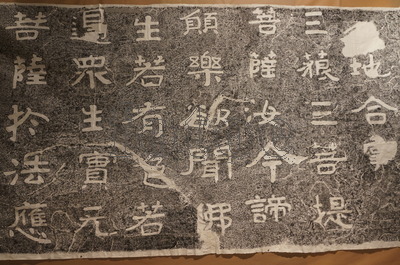 地合
三藐三菩提
菩薩汝今諦
願樂欲聞佛
生若有色若
邊眾生實无
菩薩於法應